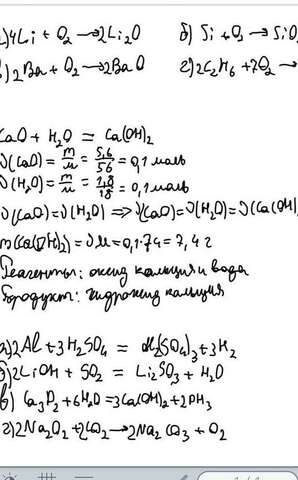 а) 4Li + O₂ → 2Li₂O б) Si + O₂ → SiO
в) 2Ba + O₂ → 2BaO г) 2C₂H₆ + 7O₂ →
CaO + H₂O = Ca(OH)₂
ν(CaO) = m/μ = 5,6/56 = 0,1 моль
ν(H₂O) = m/μ = 1,8/18 = 0,1 моль
ν(CaO) = ν(H₂O) ⟹ ν(CaO) = ν(H₂O) = ν(Ca(OH)
m(Ca(OH)₂) = νμ = 0,1·74 = 7,4 г
Реагенты: оксид кальция и вода
Продукт: гидроксид кальция
а) 2Al + 3H₂SO₄ = Al₂(SO₄)₃ + 3H₂
б) 2LiOH + SO₂ = Li₂SO₃ + H₂O
в) Ca₃P₂ + 6H₂O = 3Ca(OH)₂ + 2PH₃
г) 2Na₂O₂ + 2CO₂ → 2Na₂CO₃ + O₂